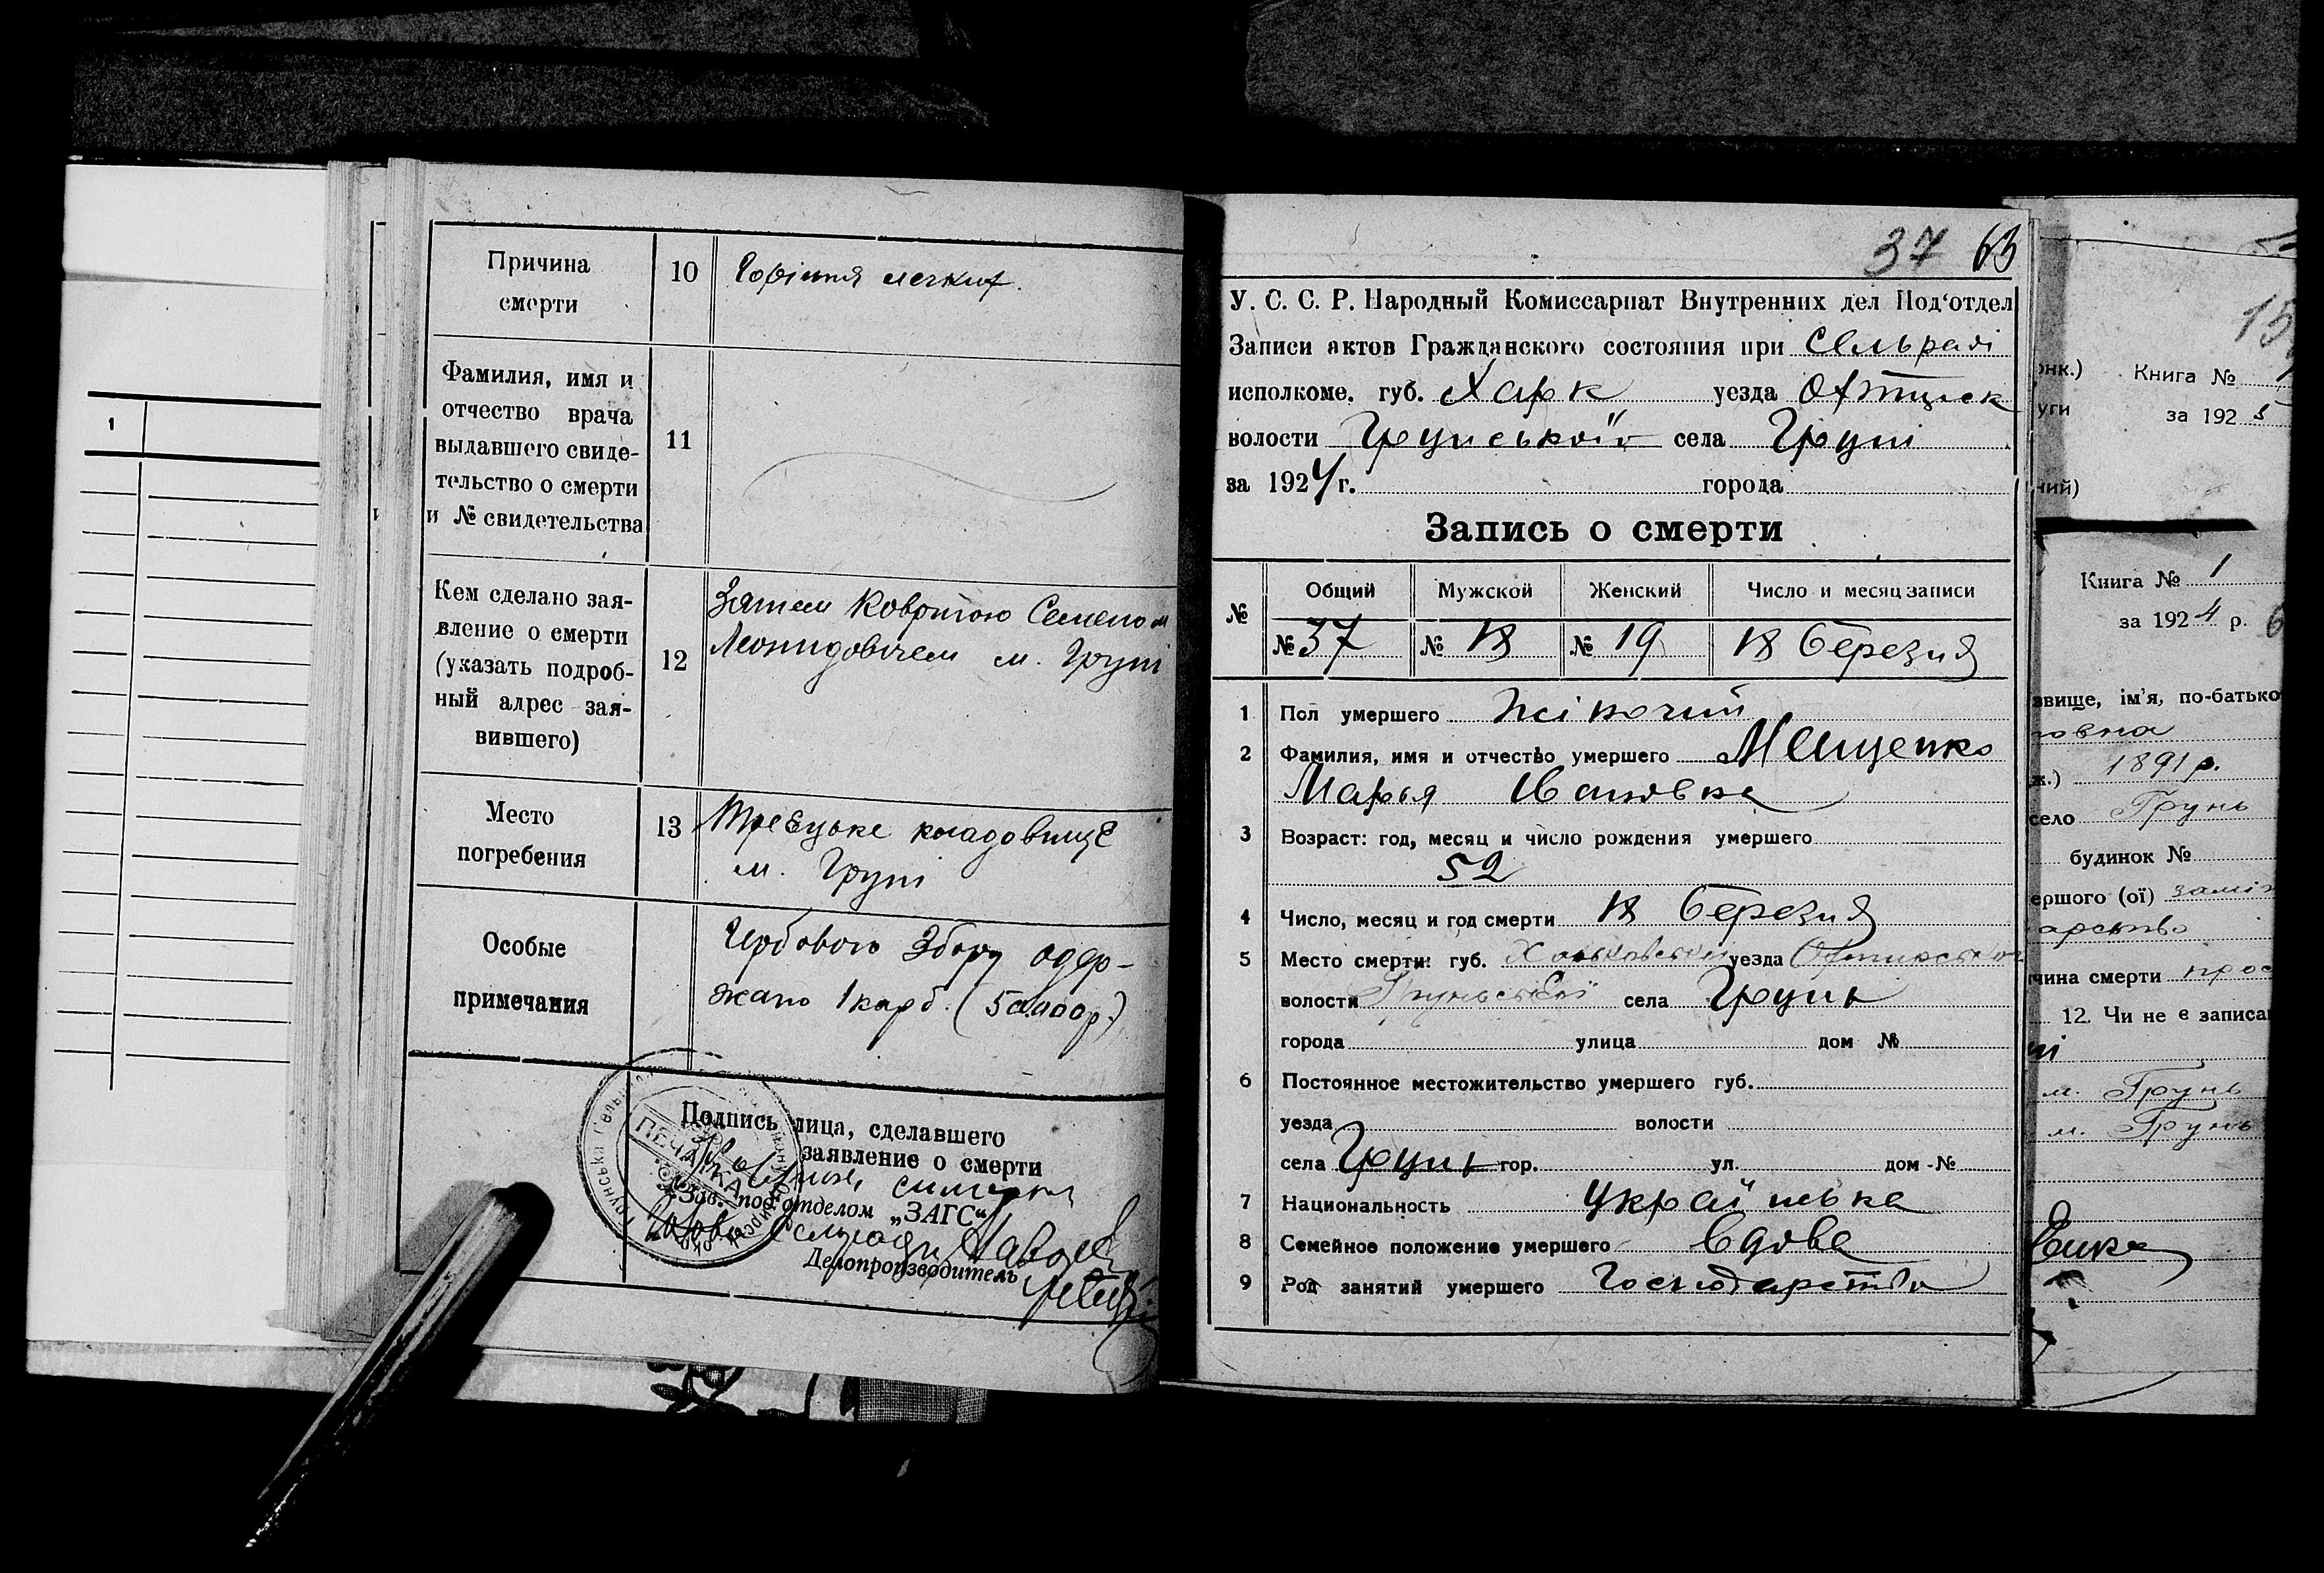 1
Причина
смерти
10
легких.
Фамилия, имя и
отчество врача
выдавшего свиде-
тельство о смерти
и № свидетельства
11
Кем сделано зая-
вление о смерти
(указать подроб-
ный адрес зая-
вившего)
12
Затем Ковритою Семеном
Леонидовичем м. Груні
Место
погребения
13
кладовище
м. Груні
Особые
примечания
Гербового Збору одер-
жано 1 карб. (50000 р.)
Подпись лица, сделавшего
заявление о смерти
ПЕЧАТКА
Зав. под‘отделом „ЗАГС“
Голова Сельради
Делопроизводитель
37 63
У. С. С. Р. Народный Комиссариат Внутренних дел Под‘отдел
Записи актов Гражданского состояния при Сельраді
исполкоме. губ. Харк уезда Охтирск
волости Грунської села Груні
за 1924 г. города
Запись о смерти
№ Общий Мужской Женский Число и месяц записи
№ 37 № 18 № 19 18 березня
1 Пол умершего жіночий
2 Фамилия, имя и отчество умершего Мищенко
Марья Ивановна
3 Возраст: год, месяц и число рождения умершего
52
4 Число, месяц и год смерти 18 березня
5 Место смерти: губ. Харьковської уезда Охтирської
волости Груньської села Грунь
города улица дом №
6 Постоянное местожительство умершего губ.
уезда волости
села Грунь гор. ул. дом №
7 Национальность Українька
8 Семейное положение умершего вдова
9 Род занятий умершего Господарство
15
Книга №
за 192 5
Книга № 1
за 192 4 р.
звище, ім’я, по-батько
1891 р.
село Грунь
будинок №
ершого (ої) замі
чина смерти
12. Чи не є записа
м. Грунь
м. Грунь